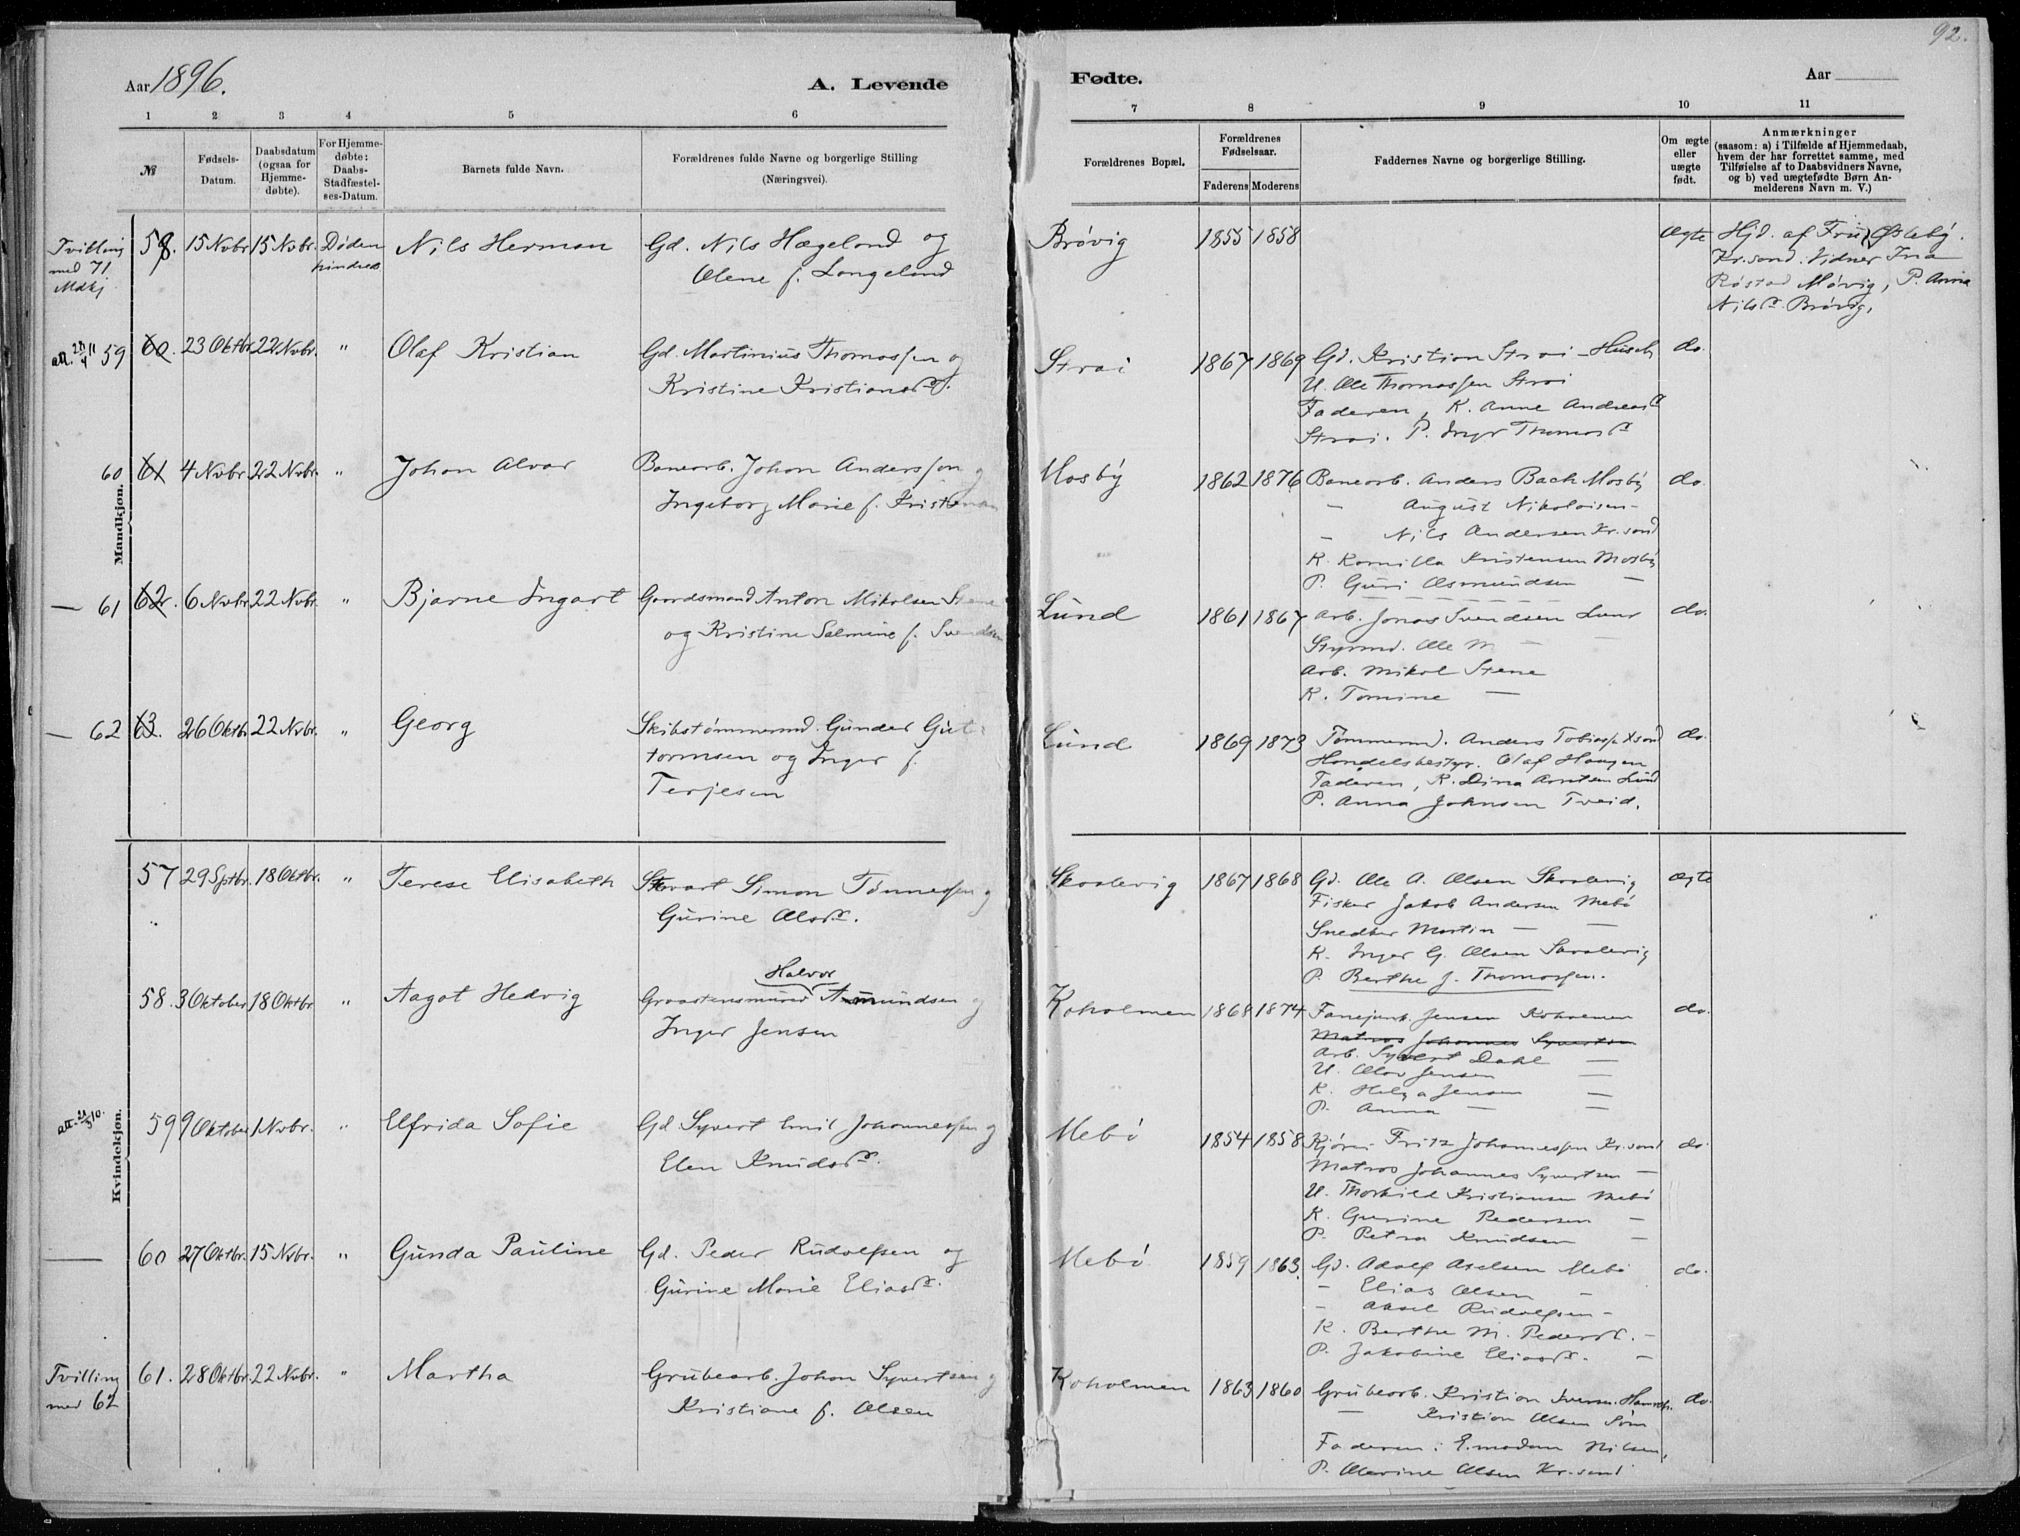 92.
Aar 1896.
A. Levende
Fødte.
Aar
1 2 3 4 5 6 7 8 9 10 11
№
Fødsels-
Datum.
Daabsdatum
(ogsaa for
Hjemme-
døbte).
For Hjemme-
døbte:
Daabs-
Stadfæstel-
ses-Datum.
Barnets fulde Navn.
Forældrenes fulde Navne og borgerlige Stilling
(Næringsvei).
Forældrenes Bopæl.
Forældrenes
Fødselsaar.
Faderens Moderens
Faddernes Navne og borgerlige Stilling.
Om ægte
eller
uægte
født.
Anmærkninger
(saasom: a) i Tilfælde af Hjemmedaab,
hvem der har forrettet samme, med
Tilføielse af to Daabsvidners Navne,
og b) ved uægtefødte Børn An-
melderens Navn m. V.)
Mandkjøn.
Tvilling
med 71
Mdkj
58. 15 Nvbr 15 Nvbr. Døden
hindret
Nils Herman
Gd. Nils Hægeland og
Olene f. Langeland
Brøvig 1855 1858
Ægte
Hjd. af Fru Østebø.
Kr.sand. Vidner Ina
Røstad Møvig, P. Anna
Nilsd. Brøvig.
59 60. 23 Oktbr. 22 Nvbr. "
Olaf Kristian
Gd. Martinius Thomassen og
Kristine Kristiansd.
Strai 1867 1869
Gd. Kristian Strai - Husch
U. Ole Thomassen Strai
Faderen, K. Anne Andreasd
Strai. P. Ingr Thomasd
do.
60 61 4 Nvbr. 22 Nvbr. "
Johan Alvar
Banearb. Johan Anderssen og
Ingeborg Marie f. Kristensen
Mosby 1862 1876
Banearb. Anders Bach Mosby
- August Nikolaisen -
- Nils Andersen Kr.sand
K. Kornilla Kristensen Mosby
P. Guri Asmundsen -
do.
- 61 62. 6 Nvbr. 22 Nvbr. "
Bjarne Ingart
Gaardsmand Anton Mikolsen Stene
og Kristine Salmine f. Svendsen
Lund 1861 1867
Arb. Jonas Svendsen Lund
Styrmd. Ole M -
Arb. Mikol Stene
K. Tomine -
do.
- 62 63. 26 Oktbr 22 Nvbr. "
Georg
Skibstømmermd. Gunder Gut-
tormsen og Inger f.
Terjesen
Lund 1869 1873
Tømmermd. Anders Tobiass. Krsand
Handelsbestyr. Olaf Haugen
Faderen, K. Dina Arntsen Lund
P. Anna Johnsen Tveid.
do.
Kvindekjøn.
57 29 Sptbr. 18 Oktbr. "
Terese Elisabeth
Stuart Simon Tønnessen og
Gurine Olsd.
Skraalevig 1867 1868
Gd. Ole A. Olsen Skraalevig
Fisker Jakob Andersen Mebø
Snedker Martin - -
K. Inger G. Olsen Skraalevig
P. Berthe J. Thomassen.
ægte
58. 3 Oktober 18 Oktbr. "
Aagot Hedvig
Halvor
Graastensmurer Amundsen og
Inger Jensen
Koholmen 1868 1874
Jensen Koholmen
Matros Johannes Syvertsen
Arb. Syvert Dahl -
U. Olav Jensen -
K. Helga Jensen -
P. Anna - -
do.
att. 21/3 10.
59 9 Oktober 1 Nvbr. "
Elfrida Sofie
Gd. Syvert Emil Johannessen og
Elen Knudsd.
Mebø 1854 1858
Fritz Johannessen Kr.sand
Matros Johannes Syvertsen -
U. Thorkild Kristiansen Mebø
K. Gurine Pedersen -
P. Petra Knudsen -
do.
60 27 Oktbr. 15 Nvbr. "
Gunda Pauline
Gd. Peder Rudolfsen og
Gurine Marie Eliasd.
Mebø 1859 1863.
Gd. Adolf Axelsen Mebø
- Elias Olsen -
- Aksel Rudolfsen -
K. Berthe M. Pedersd. -
P. Jakobine Eliasd. -
do.
Tvilling
med 62
61. 28 Oktbr. 22 Nvbr. "
Martha
Grubearb. Johan Syvertsen og
Kristiane f. Olsen
Koholmen 1863 1860
Grubearb. Kristian Iversen
- Kristian Olsen Søm
Faderen: Nilsen,
P. Olevine Olsen Kr.sand
do.